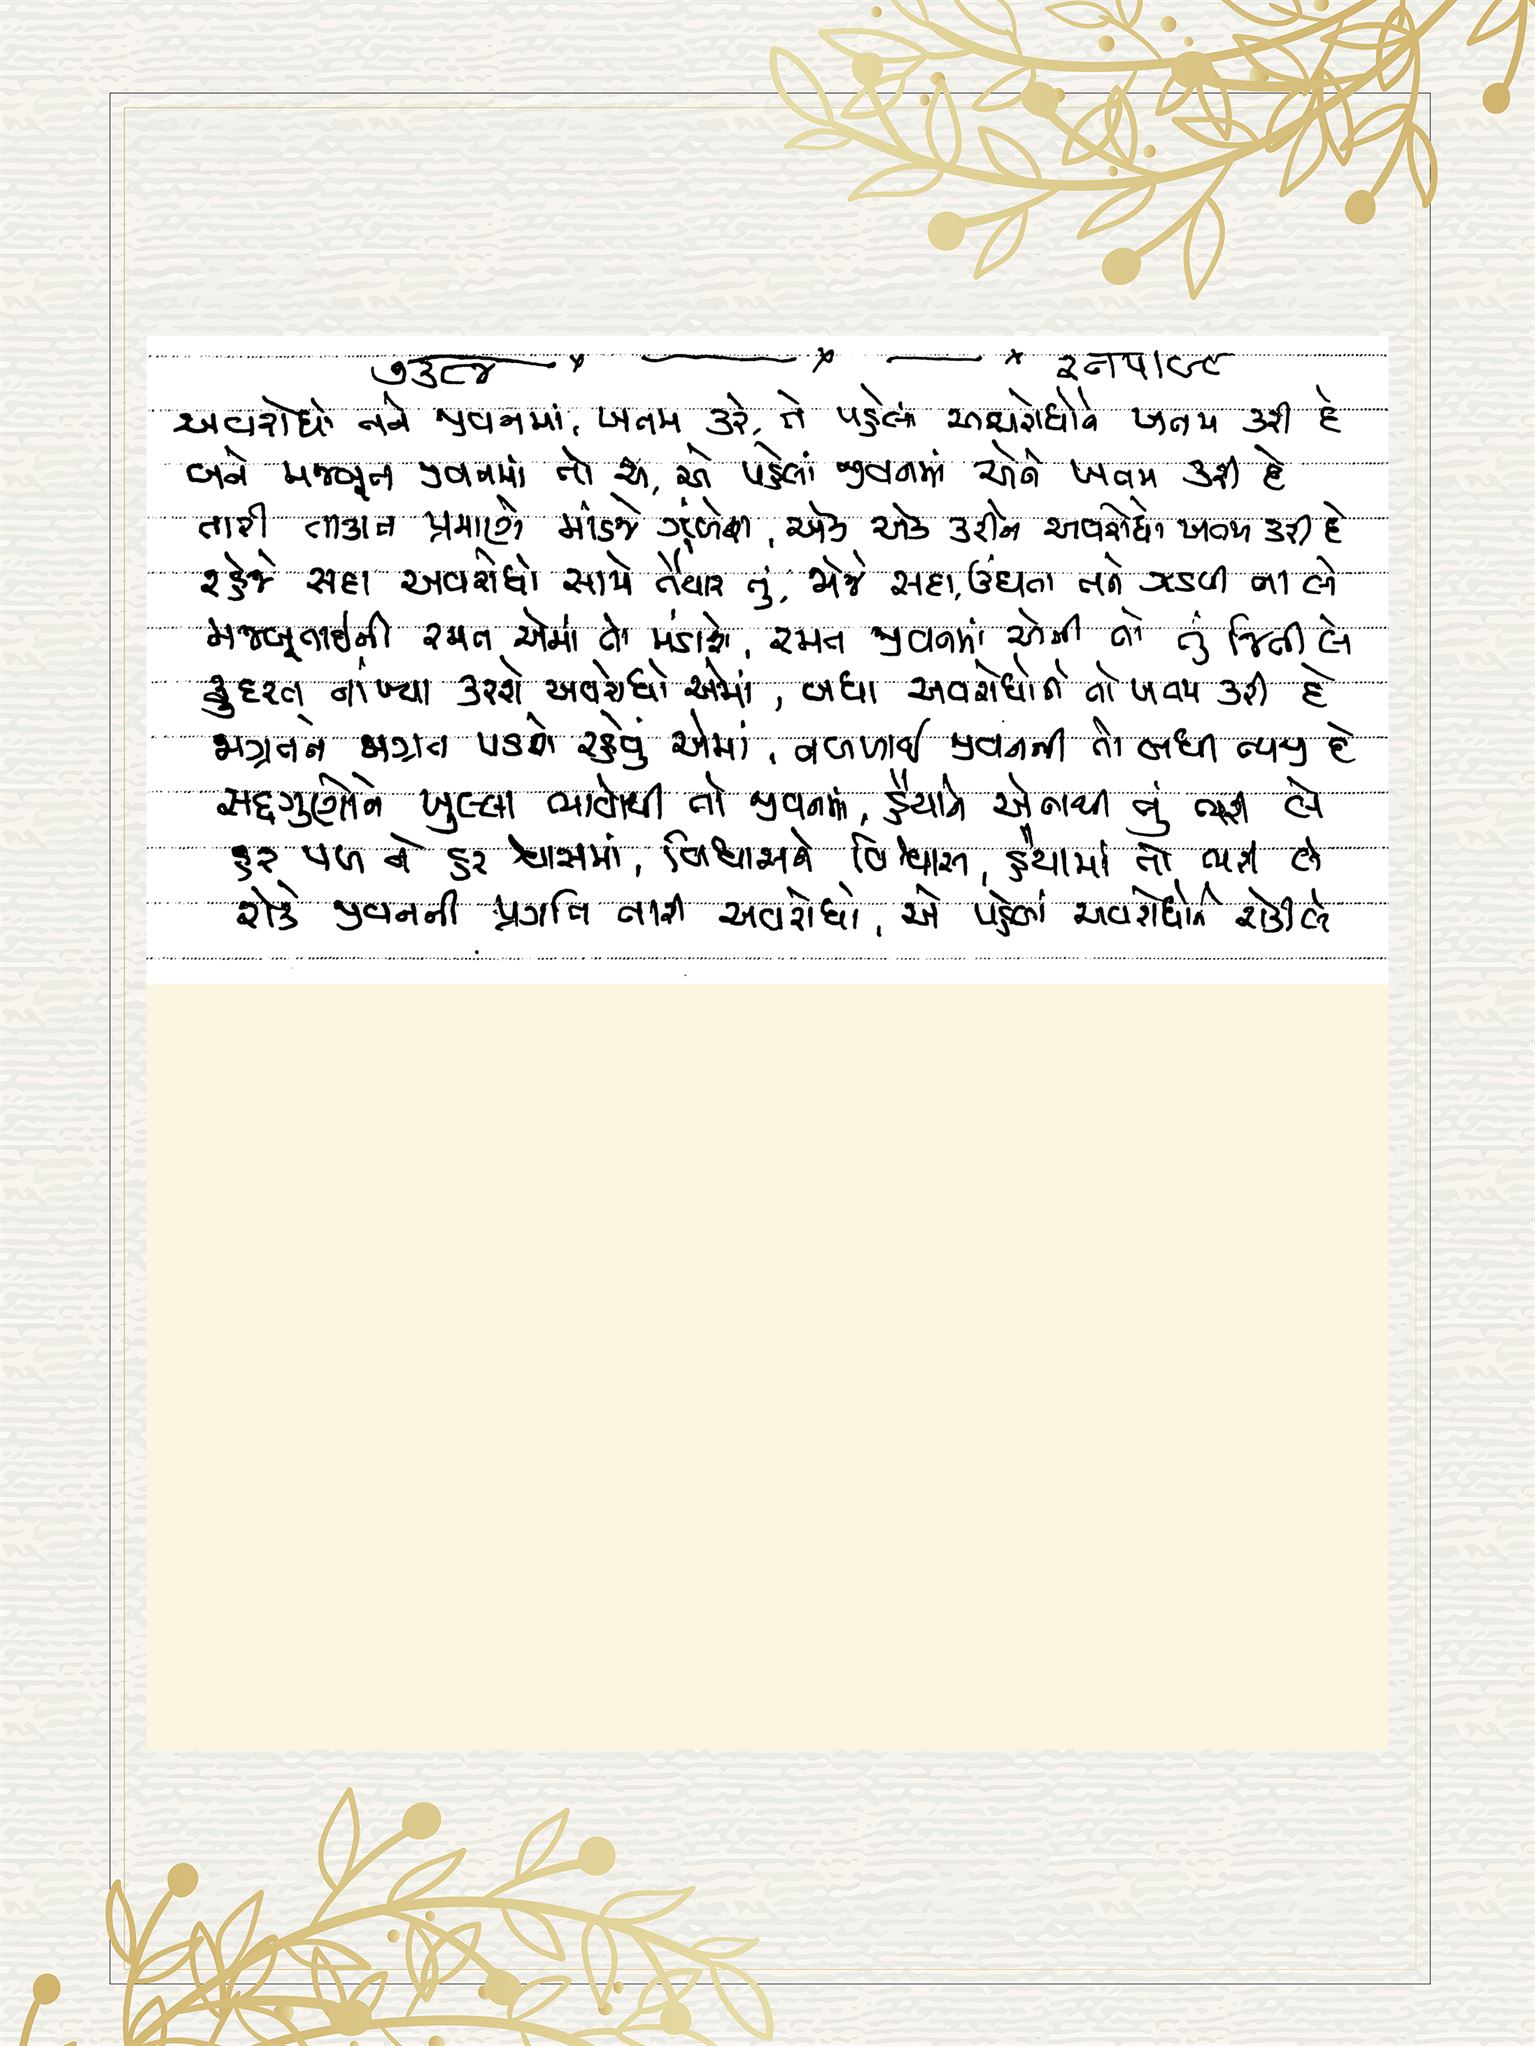 ૭૩૮૪
અવરોધો તને જીવનમાં, ખતમ કરે, તે પહેલાં અવરોધોને ખતમ કરી દે
બને મજબૂત જીવનમાં તો એ, એ પહેલાં જીવનમાં એને ખતમ કરી દે
તારી તાકાત પ્રમાણે માંડજે ઝુંબેશ, એક એક કરીને અવરોધો ખતમ કરી દે
રહેજે સદા અવરોધો સામે તૈયાર તું, જોજે સદા, ઉંઘતા તને ઝડપી ના લે
મજબૂતાઈની રમત એમાં તો મંડાશે, રમત જીવનમાં એની તો તું જિતી લે
કુદરત નાંખ્યા કરશે અવરોધો એમાં, બધા અવરોધોને તો ખતમ કરી દે
જાગ્રતને જાગ્રત પડશે રહેવું એમાં, નબળાઈ જીવનની તો બધી ત્યજી દે
સદ્દગુણોને ખુલ્લા ભાવોથી તો જીવનમાં, હૈયાને એનાથી તું ભરી લે
હર પળ ને હર શ્વાસમાં, વિશ્વાસને વિશ્વાસ, હૈયામાં તો ભરી લે
રોકે જીવનની પ્રગતિ તારી અવરોધો, એ પહેલાં અવરોધોને રોકી લે